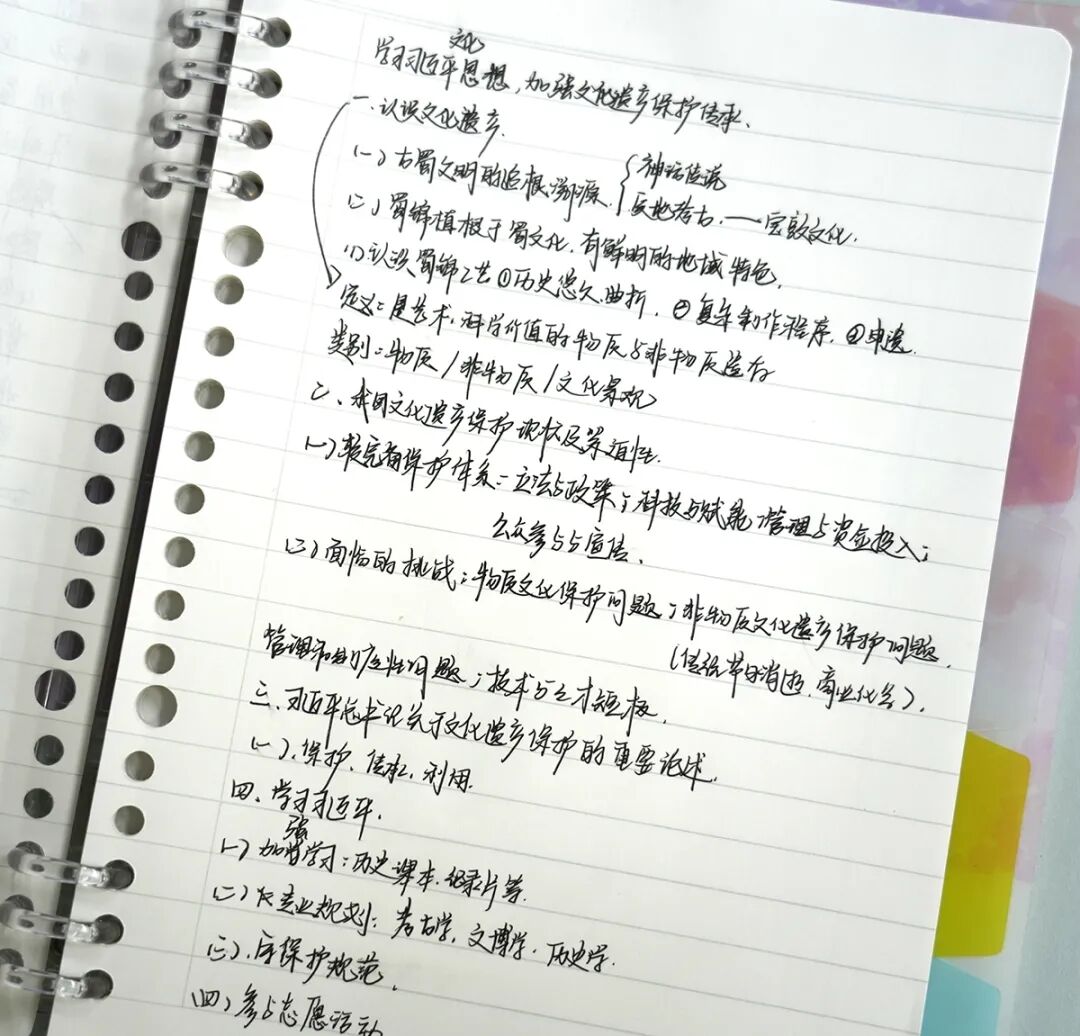 学习习近平文化思想，加强文化遗产保护传承.
一.认识文化遗产.
(一)古蜀文明的追根溯源. {神话传说
实地考古. ——宝敦文化.
(二)蜀锦植根于蜀文化.有鲜明的地域特色.
(1)认识蜀锦工艺①历史悠久.曲折.②复杂制作程序.③申遗.
定义：是艺术.科学价值的物质与非物质遗存
类别：物质/非物质/文化景观
二、我国文化遗产保护现状及紧迫性.
(一)较完备保护体系：立法与政策；科技与赋能；管理与资金投入；
公众参与与宣传.
(二)面临的挑战：物质文化保护问题；非物质文化遗产保护问题.
(传统节日消退.商业化等).
管理和问题；技术与人才短板.
三.习近平总书记关于文化遗产保护的重要论述.
(一).保护、传承、利用.
四、学习习近平.
(一)加强学习：历史课本.纪录片等.
(二)业规划：考古学.文博学.历史学.
(三).保护规范.
(四)参与志愿活动